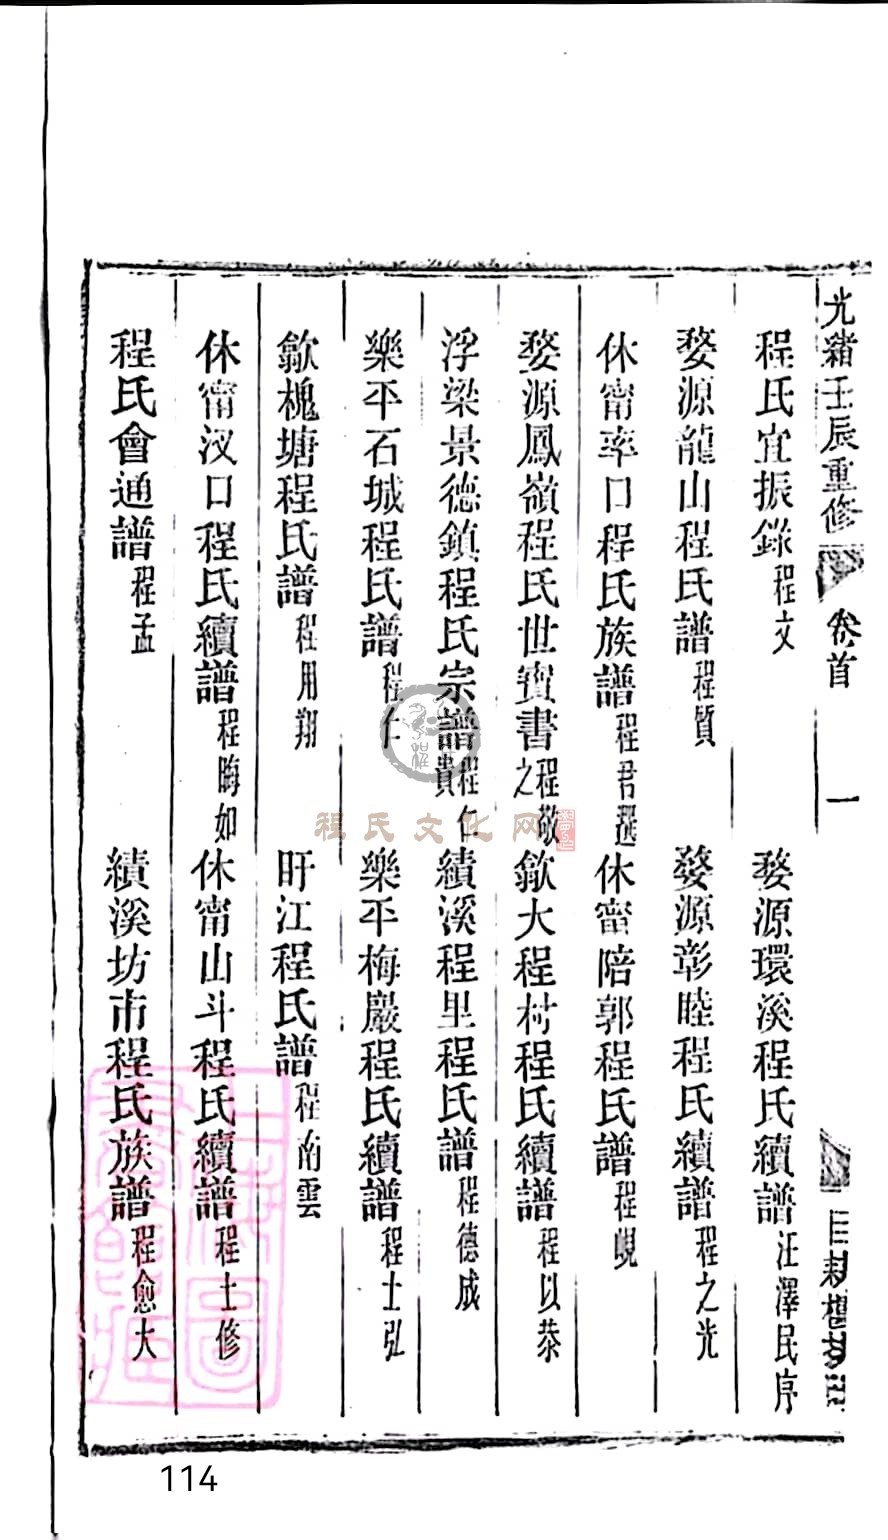 光緒壬辰重修 卷首 一
程氏宜振錄 程文 婺源環溪程氏續譜 汪澤民序
婺源龍山程氏譜 程質 婺源彰睦程氏續譜 程之光
休甯率口程氏族譜 程君選 休甯陪郭程氏譜 程峴
婺源鳳嶺程氏世寶書 程敬之 歙大程村程氏續譜 程以恭
浮梁景德鎮程氏宗譜 程仁貴 績溪程里程氏譜 程德成
樂平石城程氏譜 程仁 樂平梅巖程氏續譜 程士弘
歙槐塘程氏譜 程用翔 盱江程氏譜 程南雲
休甯汊口程氏續譜 程晦如 休甯山斗程氏續譜 程士修
程氏會通譜 程孟 績溪坊市程氏族譜 程愈大
程氏文化网
114